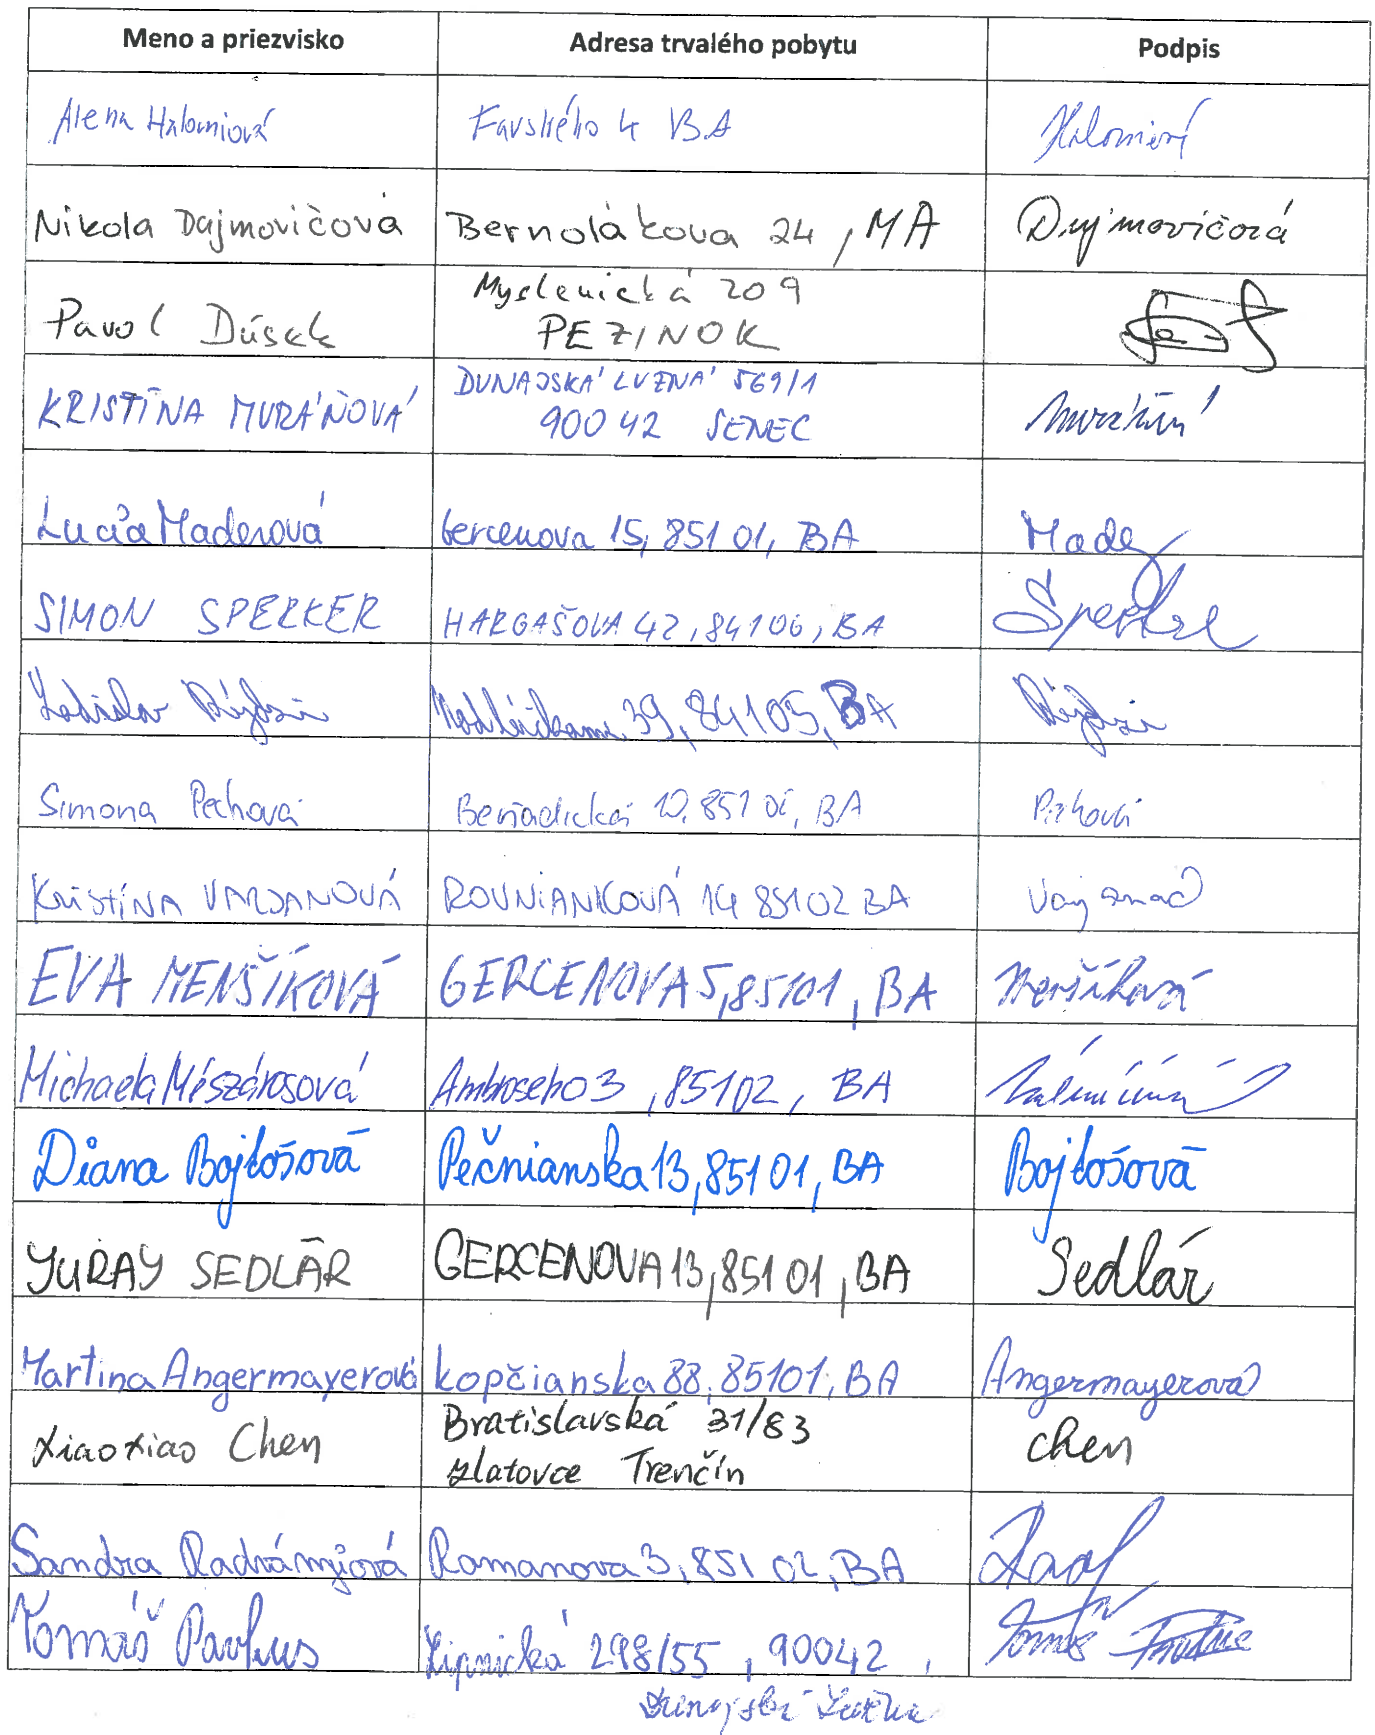 Meno a priezvisko Adresa trvalého pobytu Podpis
Alena Favského 4 BA
Nikola Dujmovičová Bernolákova 24, MA Dujmovičová
Pavol Dúsek Myslenická 209
PEZINOK
KRISTÍNA MURÁŇOVÁ DUNAJSKÁ LUŽNÁ 569/1
900 42 SENEC
Lucia Maderová Gercenova 15, 851 01, BA Mader
SIMON SPERKER HARGAŠOVA 42, 84106, BA Sperker
Ladislav 39, 84105, BA
Simona Pechová Beňadická 10, 851 06, BA Pechová
KRISTÍNA VAJSANOVÁ ROVNIANKOVÁ 14 85102 BA
EVA MENŠÍKOVÁ GERCENOVA 5, 85101, BA Menšíková
Michaela Mészárosová Ambroseho 3, 85102, BA
Diana Bojtošová Pečnianska 13, 851 01, BA Bojtošová
YURAY SEDLÁR GERCENOVA 13, 851 01, BA Sedlár
Martina Angermayerová Kopčianska 88, 85101, BA Angermayerová
Xiaoxiao Chen Bratislavská 31/83 chen
Zlatovce Trenčín
Sandra Romanova 3, 851 02, BA
Tomáš Pavkus Lipnická 298/55, 90042, Tomáš
Dunajská Lužná